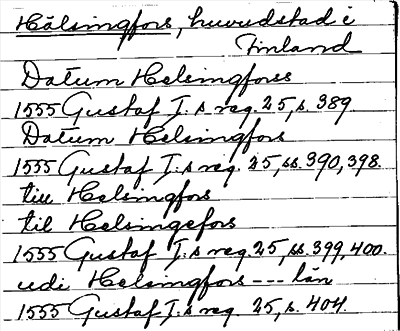 Hälsingfors, huvudstad i
Finland
Datum Helsingforss
1555 Gustaf I:s reg. 25, s. 389
Datum Helsingfors
1555 Gustaf I:s reg. 25, ss. 390, 398.
till Helsingfors
til Helsingefors
1555 Gustaf I:s reg. 25, ss. 399, 400.
udi Helsingfors --- län
1555 Gustaf I:s reg. 25, s. 404.